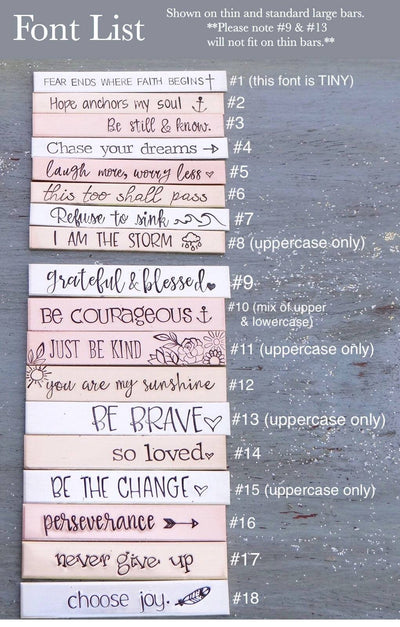 Font List
Shown on thin and standard large bars.
**Please note #9 & #13
will not fit on thin bars.**
FEAR ENDS WHERE FAITH BEGINS #1 (this font is TINY)
Hope anchors my soul #2
Be still & know. #3
Chase your dreams #4
laugh more, worry less #5
this too shall pass #6
Refuse to sink #7
I AM THE STORM #8 (uppercase only)
grateful & blessed #9
Be COURAGEOUS #10 (mix of upper
& lowercase)
JUST BE KIND #11 (uppercase only)
you are my sunshine #12
BE BRAVE #13 (uppercase only)
so loved #14
BE THE CHANGE #15 (uppercase only)
perseverance #16
never give up #17
choose joy. #18